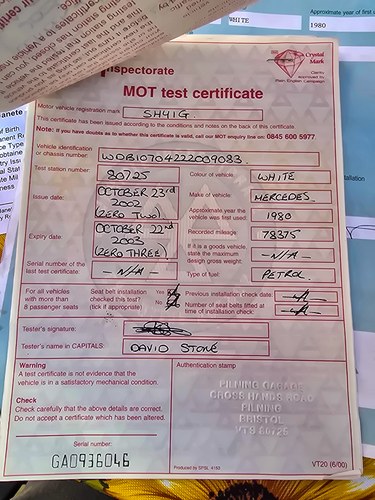 Approximate year of first
WHITE
1980
Inspectorate
Crystal
Mark
Clarity
approved by
Plain English Campaign
MOT test certificate
Motor vehicle registration mark SHY1G
This certificate has been issued according to the conditions and notes on the back of this certificate
Note: If you have doubts as to whether this certificate is valid, call our MOT enquiry line on: 0845 600 5977
Vehicle identification
or chassis number: WDB10704222009083
Test station number: 80725
Colour of vehicle: WHITE
Issue date: OCTOBER 23rd
2002
(ZERO TWO)
Make of vehicle: MERCEDES
Approximate year the
vehicle was first used: 1980
Expiry date OCTOBER 22nd
2003
(ZERO THREE)
Recorded mileage: 78375
If it is a goods vehicle,
state the maximum
design gross weight: -N/A-
Serial number of the
last test certificate: -N/A-
Type of fuel: PETROL
For all vehicles
with more than
8 passenger seats
Seat belt installation
checked this test?
(tick if appropriate)
Yes
No
Previous installation check date:
Number of seat belts fitted at
time of installation check:
Tester's signature:
Tester's name in CAPITALS: DAVID STONE
Warning
A test certificate is not evidence that the
vehicle is in a satisfactory mechanical condition.
Check
Check carefully that the above details are correct.
Do not accept a certificate which has been altered.
Serial number:
GA0936046
Authentication stamp
PILNING GARAGE
CROSS HANDS ROAD
PILNING
BRISTOL
VTS 80725
VT20 (6/00)